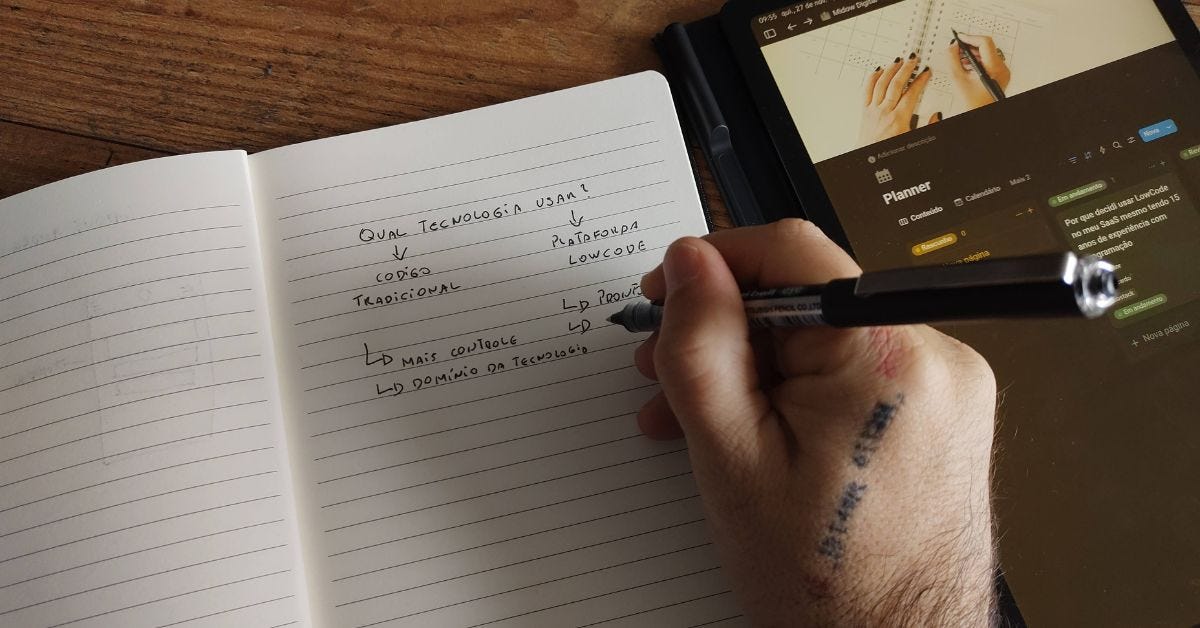 QUAL TECNOLOGIA USAR?
CODIGO
TRADICIONAL
MAIS CONTROLE
DOMÍNIO DA TECNOLOGIA
PLATAFORMA
LOWCODE
09:55 qui., 27 de nov.
Midow Digital
Adicionar descrição
Planner
Conteúdo
Calendário
Mais 2
Nova
Rascunho 0
página
Em andamento 1
Por que decidi usar LowCode
no meu SaaS mesmo tendo 15
anos de experiência com
Em andamento
+ Nova página
PENCIL CO.,LTD